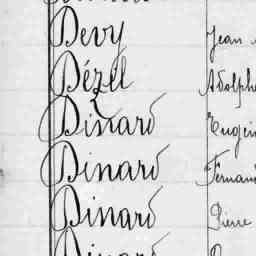 Devy Jean
Dézél Adolphe
Dinard Eugèn
Dinard Fernan
Dinard Pierre
Dinard